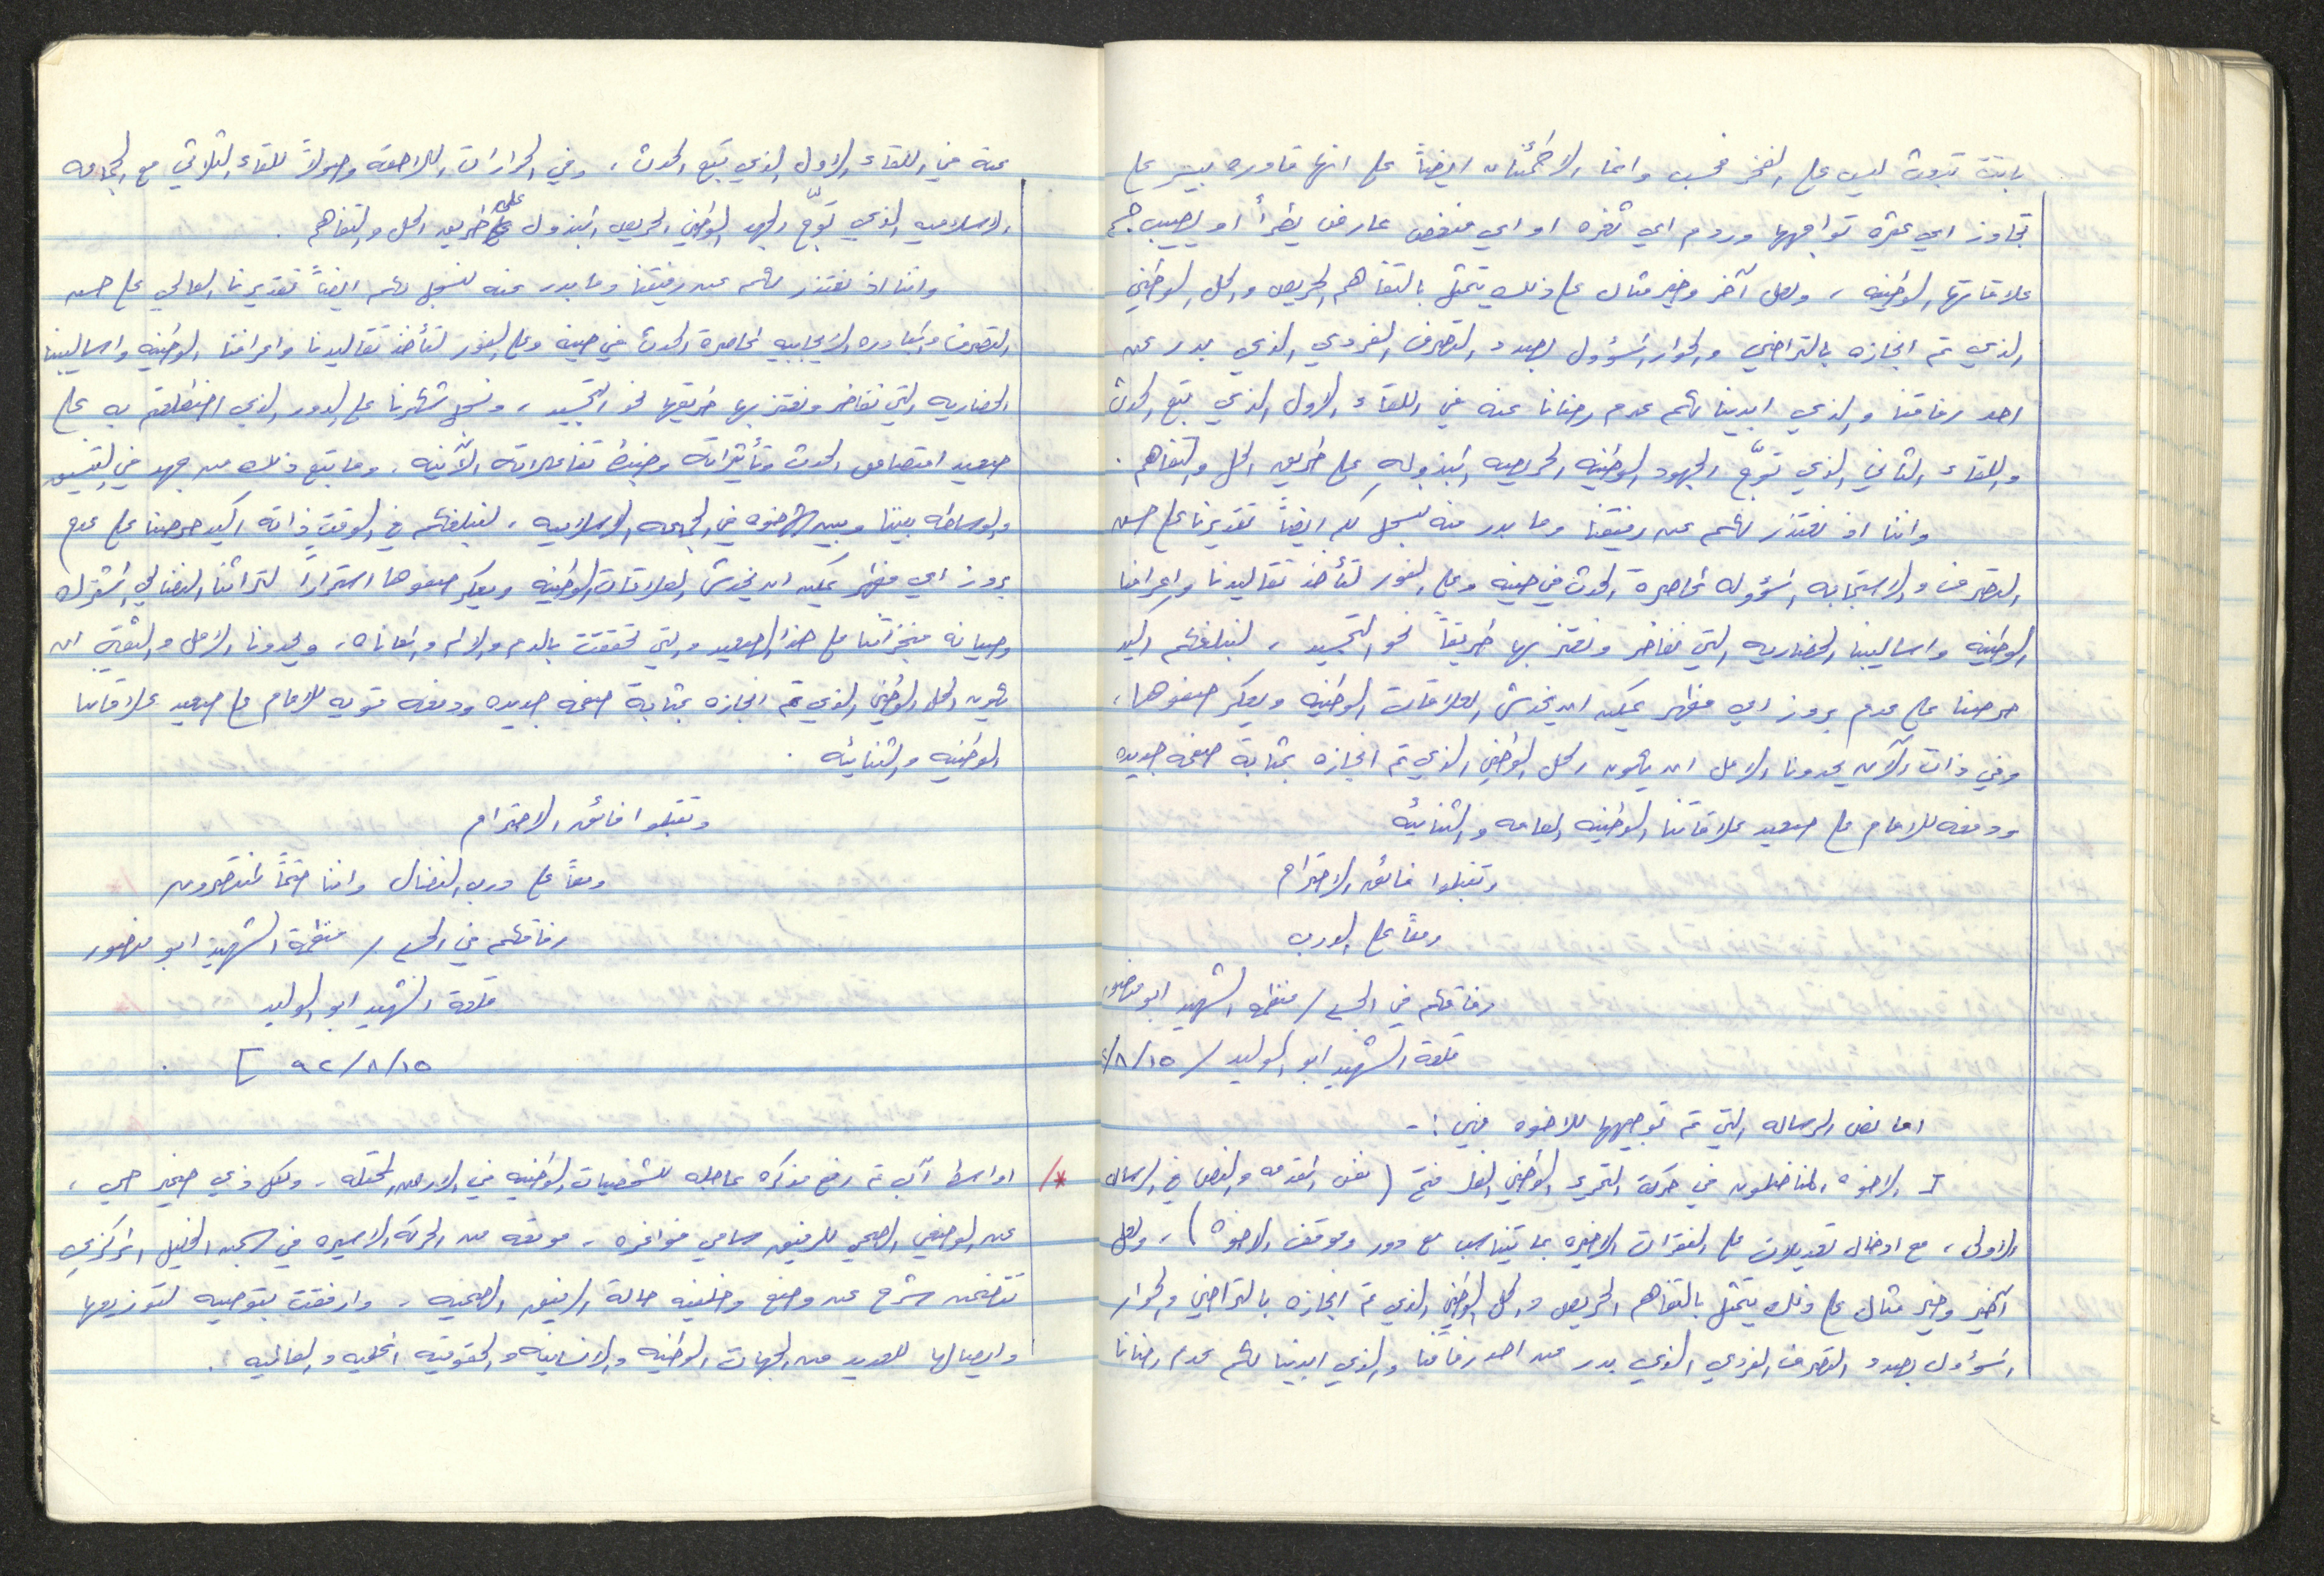 باتت تبعث ليس على الفخر فحسب وانما الاطمئنان ايضاً على انها قادره بيسر على
تجاوز اي عثره تواجهها وردم اي ثغره او اي منغص عارض يطرأ او يصيب جسم
علاقاتها الوطنيه ، ولعل آخر وخير مثال على ذلك يتمثل بالتفاهم الحريص والحل الوطني
الذي تم انجازه بالتراضي والحوار المسؤول بصدد التصرف الفردي الذي بدر عن
احد رفاقنا والذي ابدينا لكم عدم رضانا عنه في اللقاء الاول الذي تبع الحدث
واللقاء الثاني الذي توّج الجهود الوطنيه الحريصه المبذوله على طريق الحل والتفاهم .
واننا اذ نعتذر لكم عن رفيقنا وما بدر منه نسجل لكم ايضاً تقديرنا على حسن
التصرف والاستجابه المسؤوله لمحاصرة الحدث في حينه وعلى الفور لتأخذ تقاليدنا واعرافنا
الوطنيه واساليبنا الحضاريه التي نفاخر ونعتز بها طريقاً نحو التجسيد ، لنبلغكم اكيد
حرصنا على عدم بروز اي مظهر يمكن ان يخدش العلاقات الوطنيه ويعكر صفوها ،
وفي ذات الآن يحدونا الامل ان يكون الحل الوطني الذي تم انجازه بمثابة صفحه جديده
ودفعه للامام على صعيد علاقاتنا الوطنيه العامه والثنائيه
وتقبلوا فائق الاحترام
ومعاً على الدرب
رفاقكم في الجـ / منظمة الشهيد ابو منصور
قلعة الشهيد ابو الوليد / ١٥/٨/
اما نص الرساله التي تم توجيهها للاخوه فهي :-
[ الاخوه المناضلون في حركة التحرير الوطني الفلـ فتح ( نفس المقدمه والنص في الرساله
الاولى ، مع ادخال تعديلات على الفقرات الاخيره بما يتناسب مع دور وموقف الاخوه ) ، ولعل
آخير وخير مثال على ذلك يتمثل بالتفاهم الحريص والحل الوطني الذي تم انجازه بالتراضي والحوار
المسؤول بصدد التصرف الفردي الذي بدر من احد رفاقنا والذي ابدينا لكم عدم رضانا
عنه في اللقاء الاول الذي تبع الحدث ، وفي الحوارات اللاحقه وصولاً للقاء الثلاثي مع الجماعه
الاسلاميه الذي توّج الجهد الوطني الحريص المبذول على طريق الحل والتفاهم .
واننا اذ نعتذر لكم عن رفيقنا وما بدر عنه نسجل لكم ايضاً تقديرنا العالي على حسن
التصرف والمبادره الايجابيه لمحاصرة الحدث في حينه وعلى الفور لتأخذ تقاليدنا واعرافنا الوطنيه واساليبنا
الحضاريه التي نفاخر ونعتز بها طريقها نحو التجسيد ، ونسجل شكرنا على الدور الذي اضطلعتم به على
صعيد امتصاص الحدث وتأثيراته وضبط تفاعلاته الآنيه ، وما تبع ذلك من جهد في التنسيق
والوساطه بيننا وبين الاخوه في الجماعه الاسلاميه ، لنبلغكم في الوقت ذاته اكيد حرصنا على عدم
بروز اي مظهر يمكن ان يخدش العلاقات الوطنيه ويعكر صفوها استمراراً لتراثنا النضالي المشترك
وصيانه منجزاتنا على هذا الصعيد والتي تحققت بالدم والالم والمعاناه ، ويحدونا الامل والثقه ان
يكون الحل الوطني الذي تم انجازه بمثابة صفحه جديده ودفعه قويه للامام على صعيد علاقاتنا
الوطنيه والثنائيه .
وتقبلوا فائق الاحترام
ومعاً على درب النضال واننا حتماً لمنتصرون
رفاقكم في الجـ / منظمة الشهيد ابو منصور
قلعة الشهيد ابو الوليد
١٥/٨/٩٢ ] .
*/ اواسط آب تم رفع مذكره عاجله للشخصيات الوطنيه في الارض المحتله ، ولكل ذي ضمير حي ،
عن الوضع الصحي للرفيق سامي فواغره ، موقعه من الحركه الاسيره في سجن الخليل المركزي
تتضمن شرح عن وضع وخلفيه حالة الرفيق الصحيه ، وارفقت بتوصيه لتوزيعها
وايصالها للعديد من الجهات الوطنيه والانسانيه والحقوقيه المحليه والعالميه .